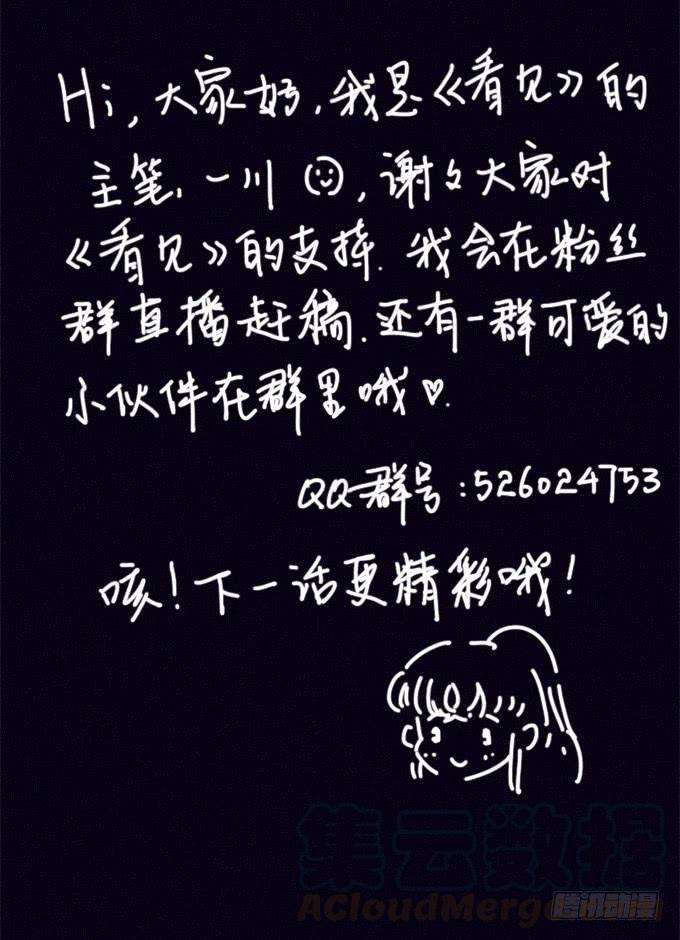 Hi,大家好,我是《看见》的
主笔,一川,谢々大家对
《看见》的支持.我会在粉丝
群直播赶稿.还有一群可爱的
小伙伴在群里哦♡.
QQ群号:526024753
咳!下一话更精彩哦!
集云数据
ACloudMerge.com
腾讯动漫